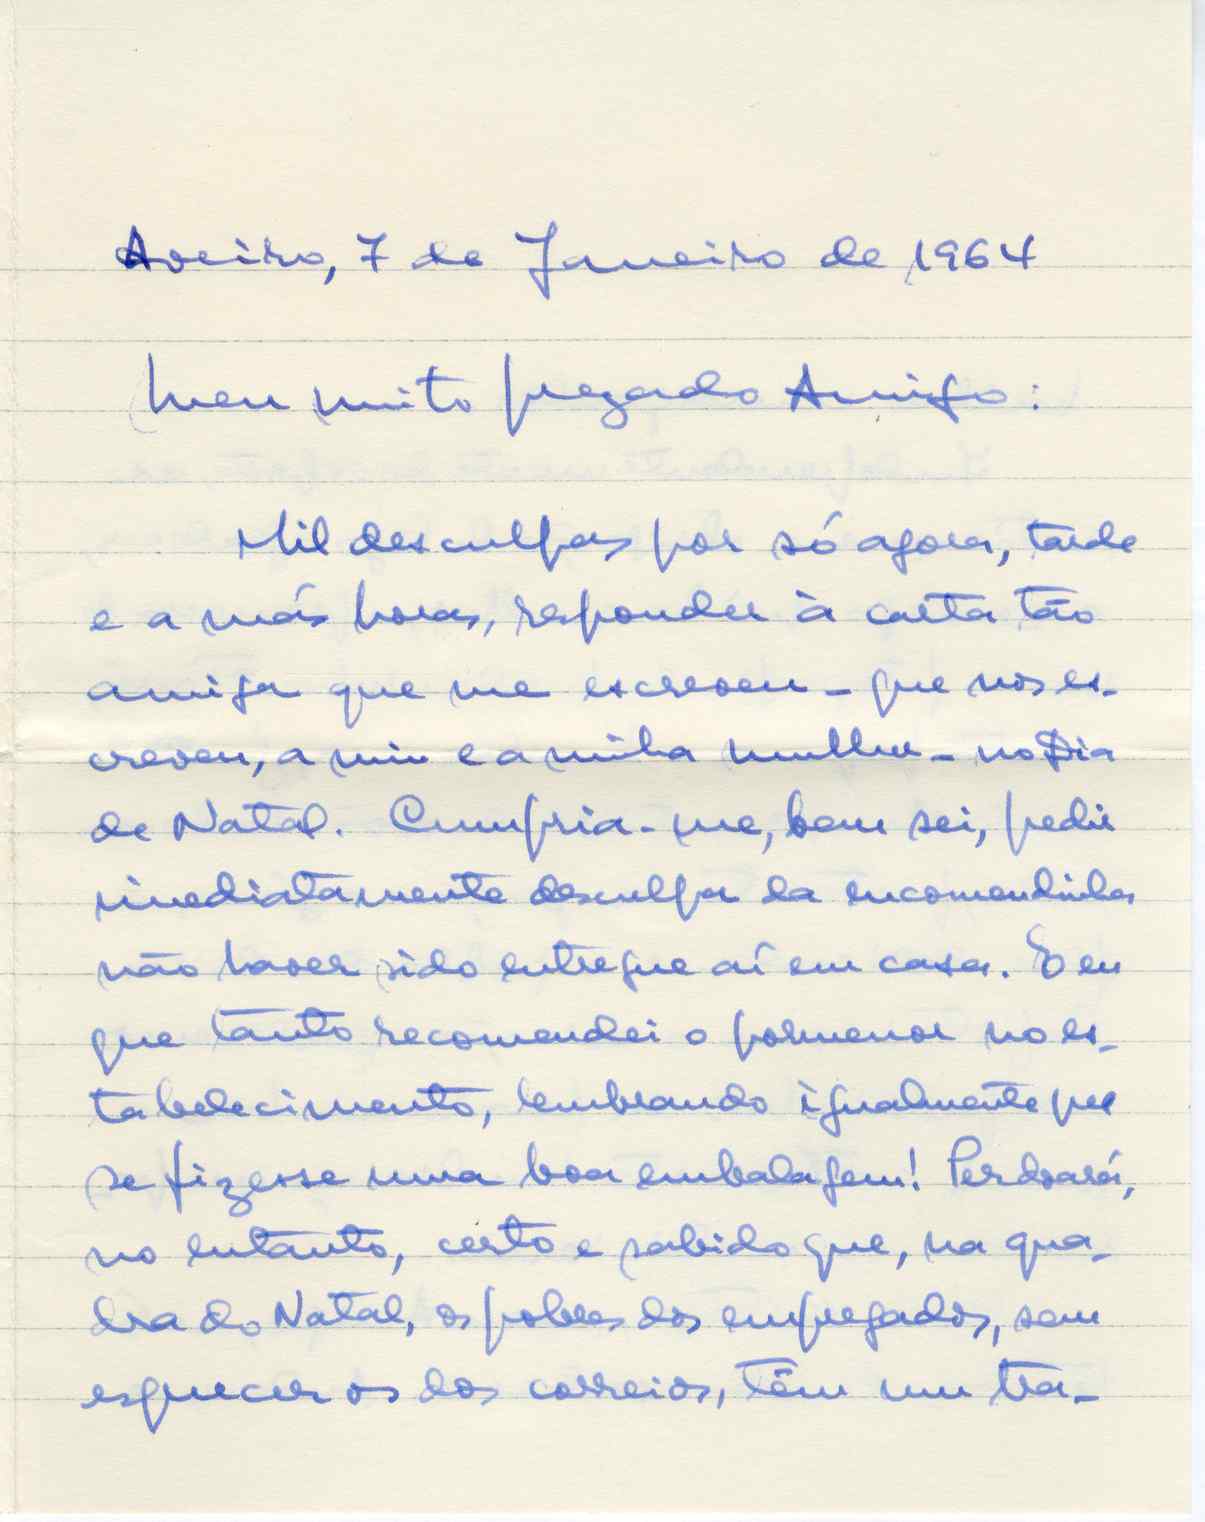 Aveiro, 7 de Janeiro de 1964
Meu muito prezado Amigo:
Mil desculpas por só agora, tarde
e a más horas, responder à carta tão
amiga que me escreveu - que nos es-
creveu, a mim e a minha mulher - no Dia
de Natal. Cumpria-me, bem sei, pedir
imediatamente desculpa da encomendinha
não haver sido entregue aí em casa. E eu
que tanto recomendei o pormenor no es-
tabelecimento, lembrando igualmente que
se fizesse uma boa embalagem! Perdoará,
no entanto, certo e sabido que, na qua-
dra do Natal, os pobres dos empregados, sem
esquecer os dos correios, têm um tra-